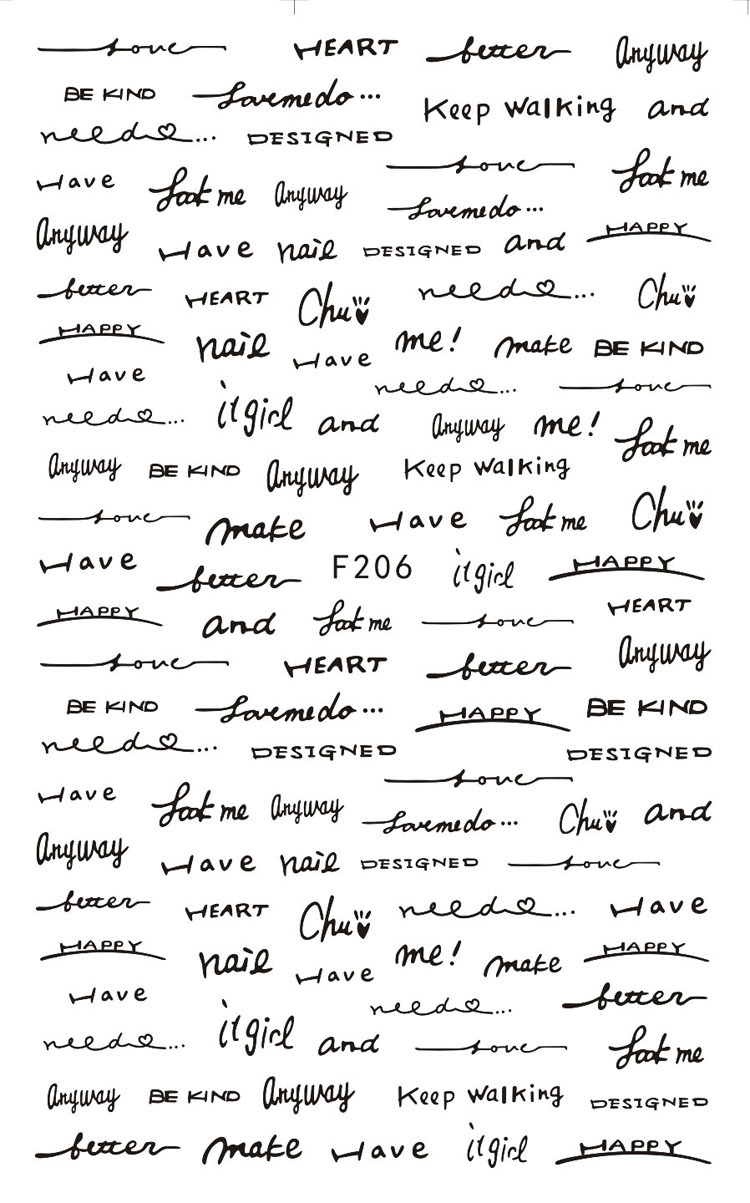 love HEART better Anyway
BE KIND Lovemedo... Keep walking and
need... DESIGNED
love
Have Look me Anyway Look me
Lovemedo...
Anyway Have nail DESIGNED and HAPPY
better HEART Chu need... Chu
HAPPY nail Have me! make BE KIND
Have need... love
need... it girl and Anyway me! Look me
Anyway BE KIND Anyway Keep walking
love make Have Look me Chu
Have better F206 it girl HAPPY
HAPPY and Look me love HEART
love HEART better Anyway
BE KIND Lovemedo... HAPPY BE KIND
need... DESIGNED DESIGNED
love
Have Look me Anyway Lovemedo... Chu and
Anyway Have nail DESIGNED love
better HEART Chu need... Have
HAPPY nail Have me! make HAPPY
Have need... better
need... it girl and love Look me
Anyway BE KIND Anyway Keep walking DESIGNED
better make Have it girl HAPPY